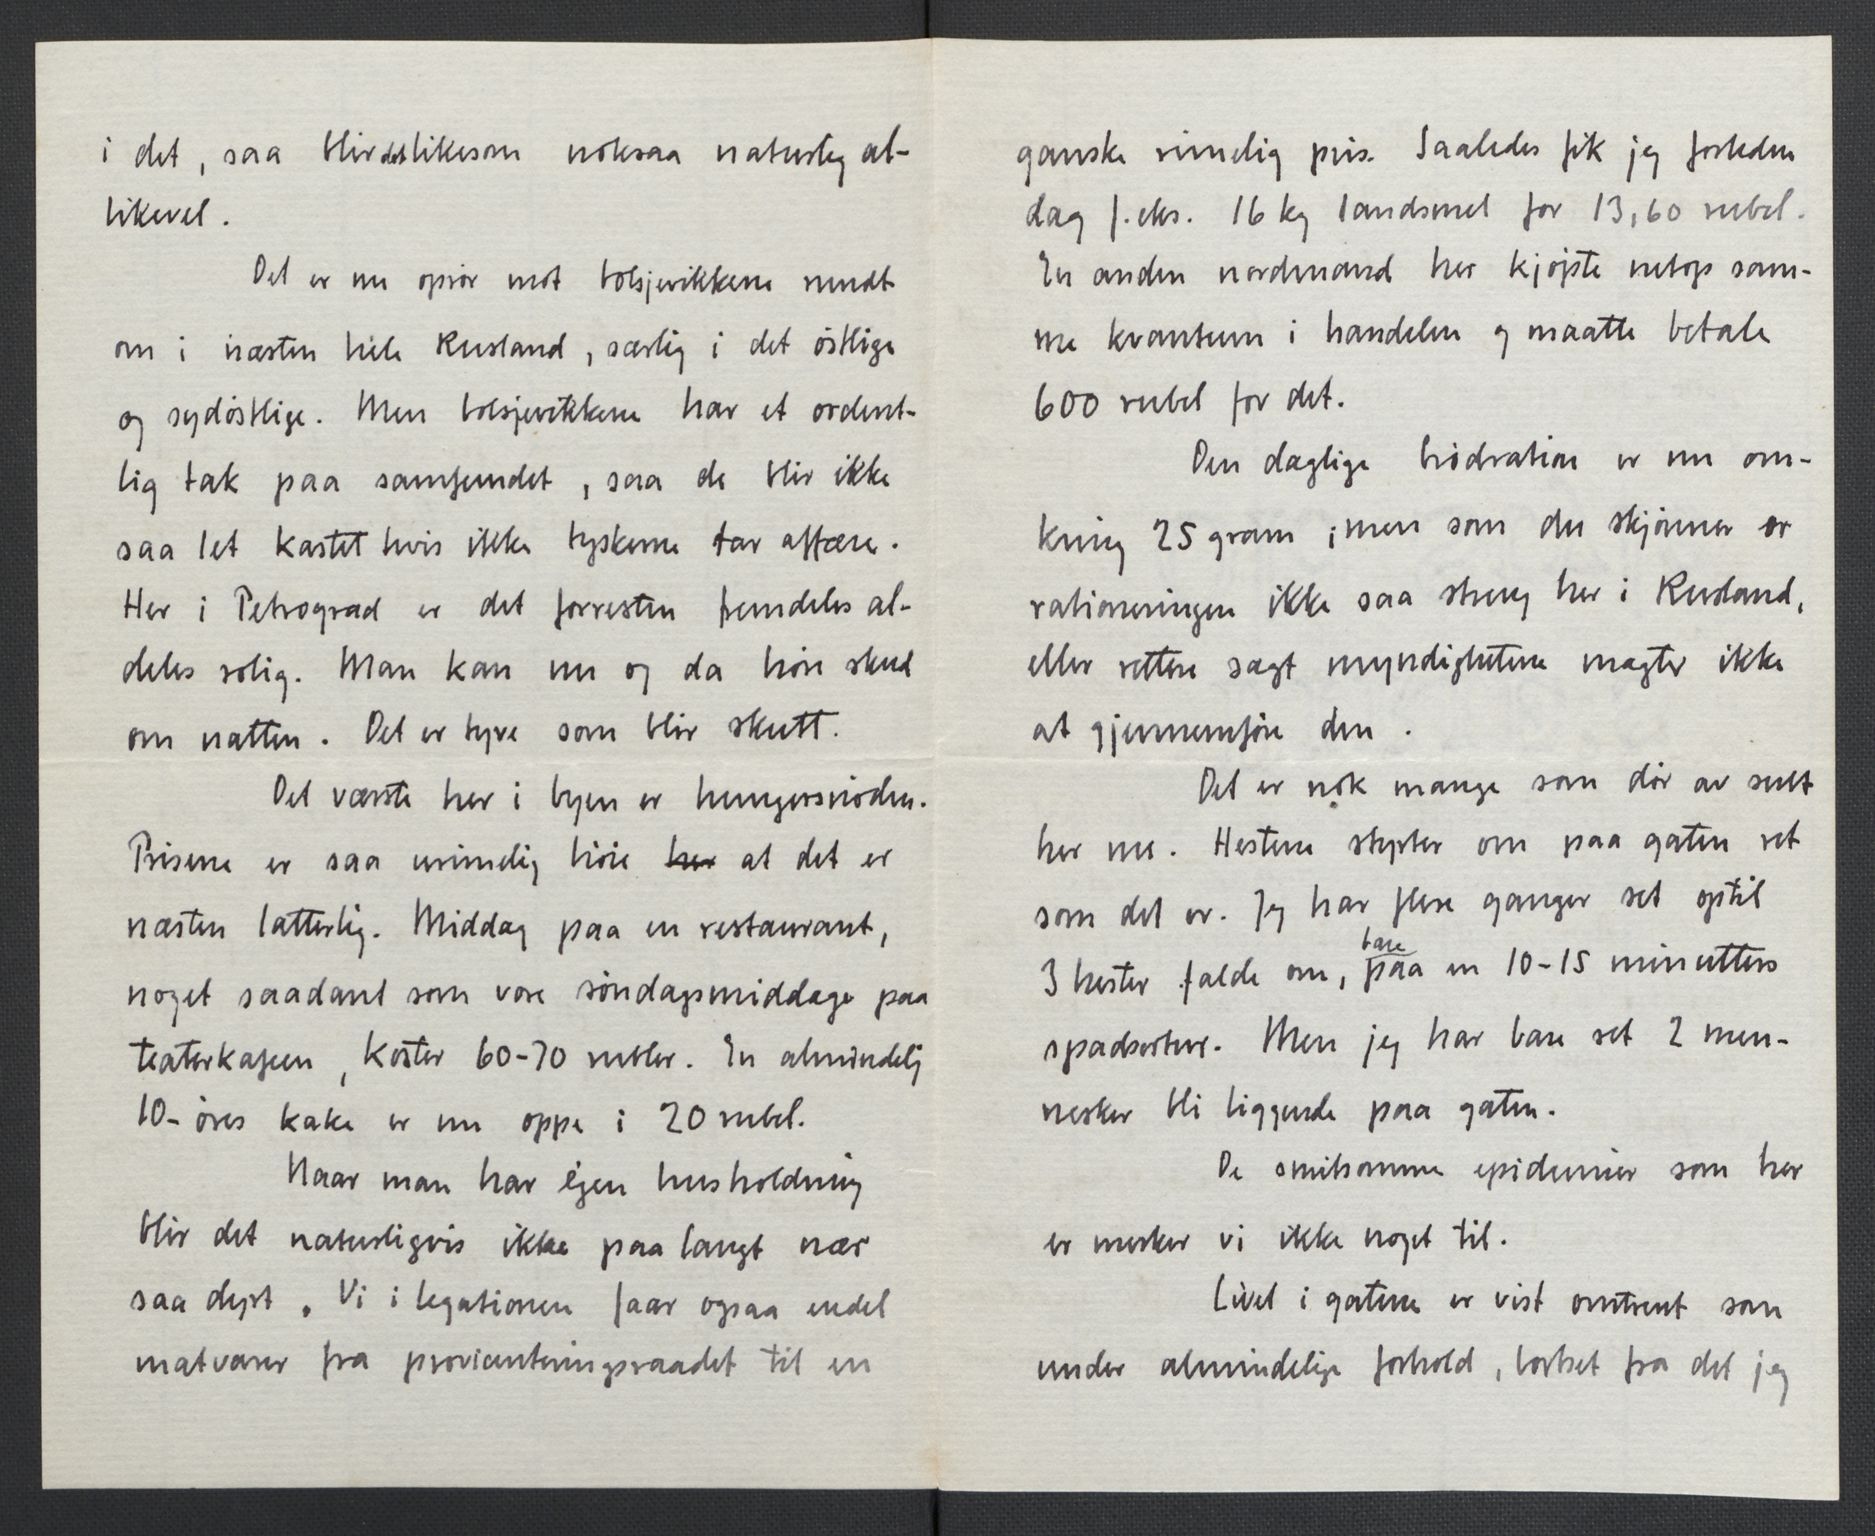 i det, saa blir det likesom noksaa naturlig al-
likevel.
Det er nu oprör mot bolsjevikkene rundt
om i næsten hele Rusland, særlig i det östlige
og sydöstlige. Men bolsjevikkene har et ordent-
lig tak paa samfundet, saa de blir ikke
saa let kastet hvis ikke tyskerne tar affære.
Her i Petrograd er det forresten fremdeles al-
deles rolig. Man kan nu og da höre skud
om natten. Det er tyve som blir skutt.
Det værste her i byen er hungersnöden.
Prisene er saa urimelig höie her at det er
næsten latterlig. Middag paa en restaurant,
noget saadant som vore söndagsmiddage paa
teaterkafeen, koster 60-70 rubler. En almindelig
10-öres kake er nu oppe i 20 rubel.
Naar man har egen husholdning
blir det naturligvis ikke paa langt nær
saa dyrt. Vi i legationen faar ogsaa endel
matvarer fra provianteringsraadet til en
ganske rimelig pris. Saaledes fik jeg forleden
dag f.eks. 16 kg landsmel for 13,60 rubel.
En anden nordmand her kjöpte netop sam-
me kvantum i handelen og maatte betale
600 rubel for det.
Den daglige brödration er nu om-
kring 25 gram; men som du skjönner er
rationeringen ikke saa streng her i Rusland,
eller rettere sagt myndighetene magter ikke
at gjennemföre den.
Det er nok mange som dör av sult
her nu. Hestene stupter om paa gaten ret
som det er. Jeg har flere ganger set optil
3 hester falde om, bare paa en 10-15 minutters
spadsertur. Men jeg har bare set 2 men-
nesker bli liggende paa gaten.
De smitsomme epidemier som her
er merker vi ikke noget til.
Livet i gatene er vist omtrent som
under almindelige forhold, bortset fra det jeg